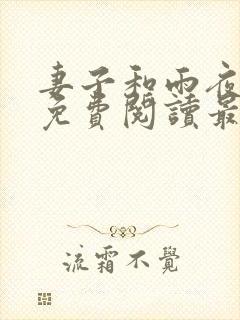 妻子和雨夜
免費閱讀最
流霜不覺